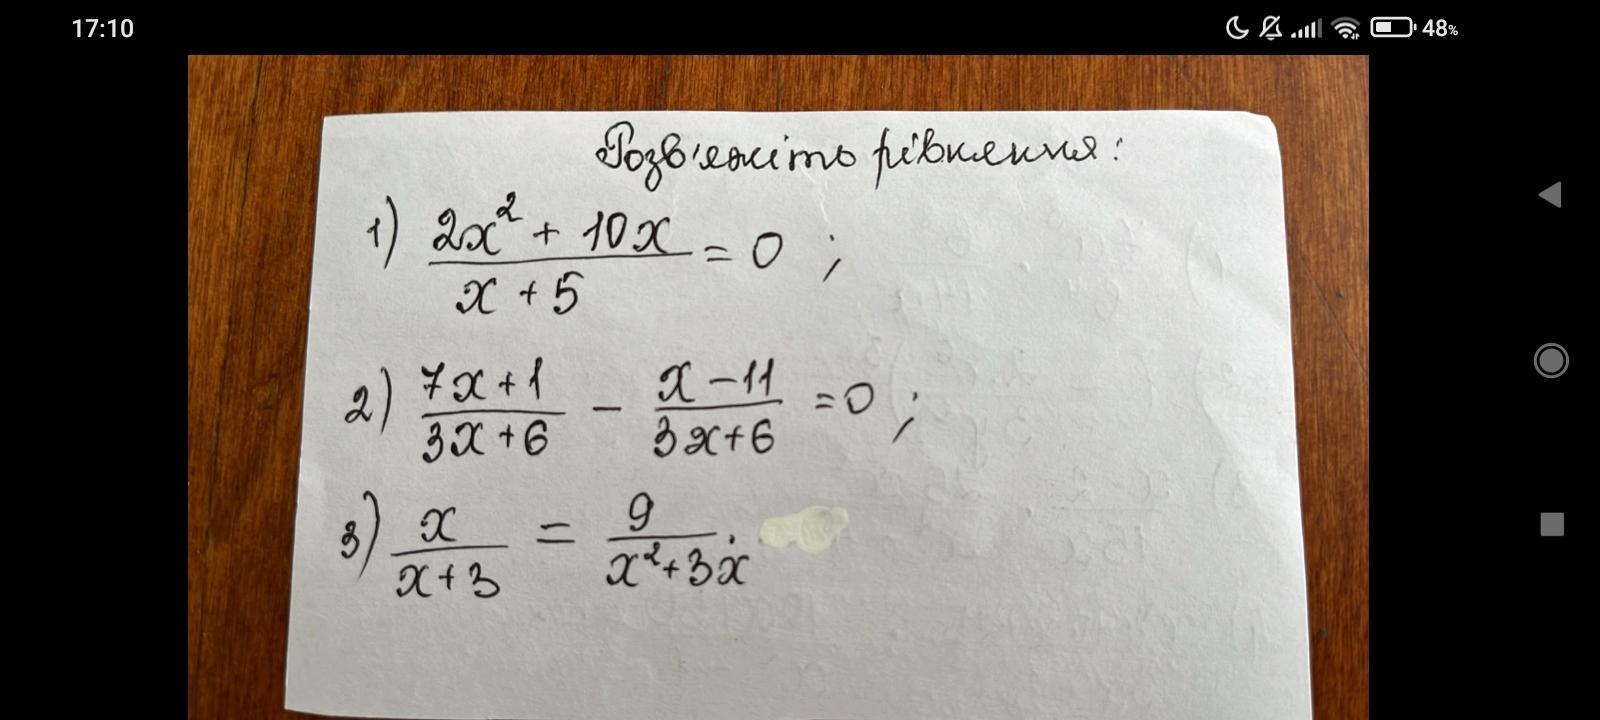 17:10 48%
Розв'яжіть рівняння:
1) (2x² + 10x)/(x + 5) = 0 ;
2) (7x + 1)/(3x + 6) − (x − 11)/(3x + 6) = 0 ;
3) x/(x + 3) = 9/(x² + 3x).